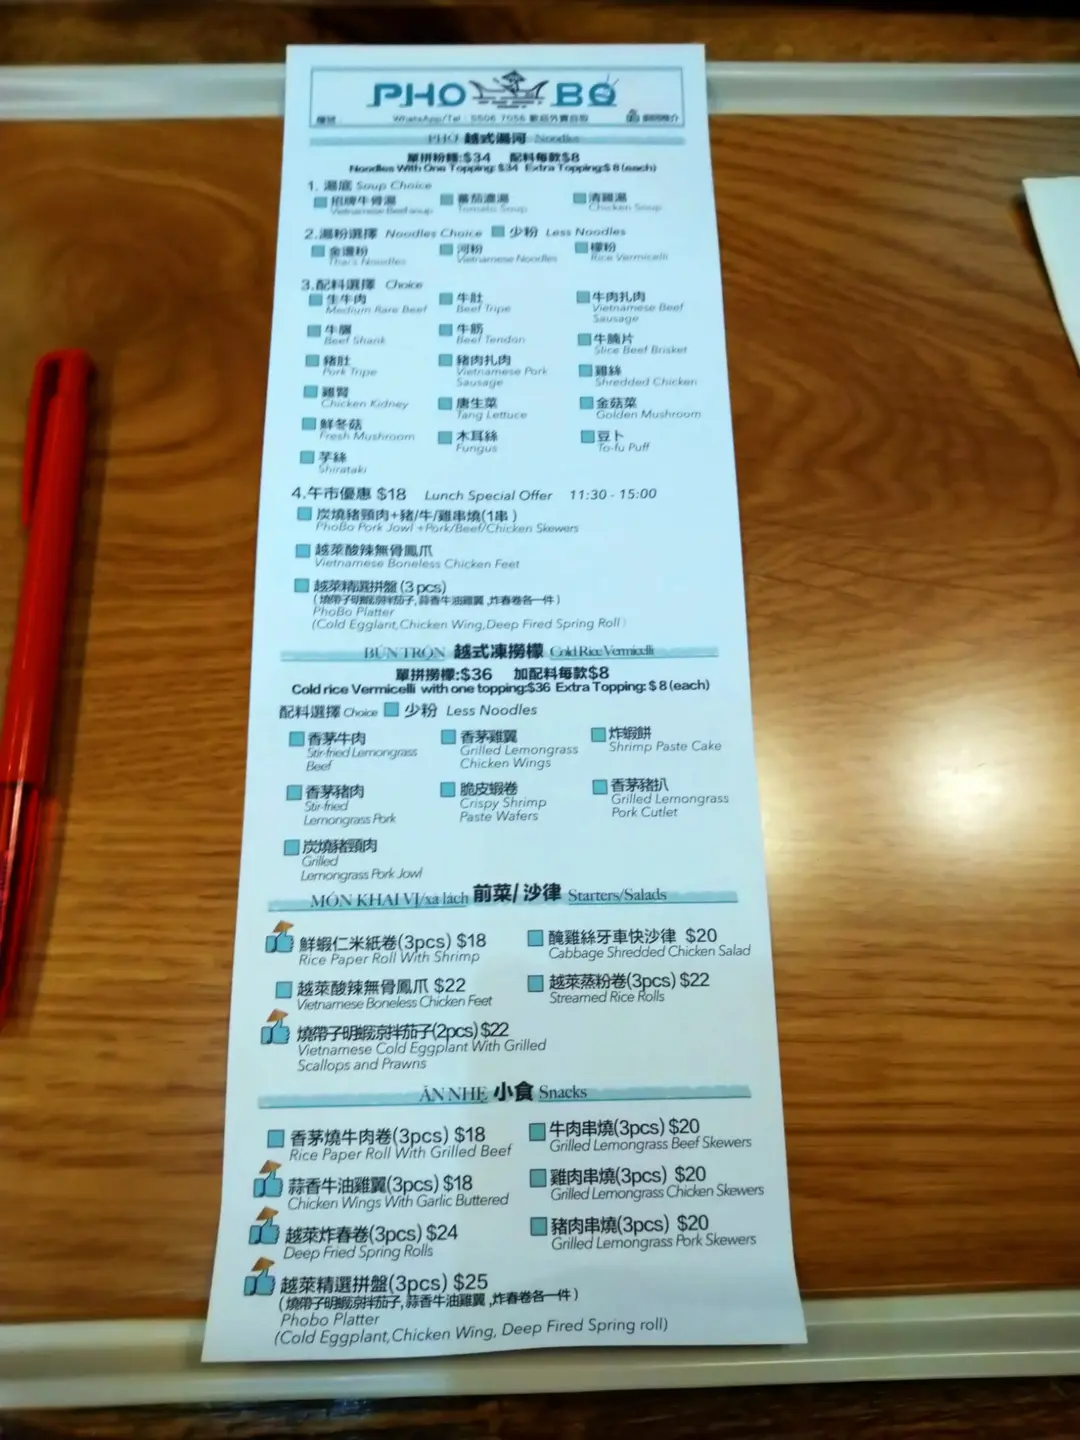 PHO BO
WhatsApp/Tel : 5506 7056 歡迎外賣自取
PHỞ 越式湯河 Noodles
單拼粉麵:$34 配料每款$8
Noodles With One Topping: $34 Extra Topping:$ 8 (each)
1. 湯底 Soup Choice
招牌牛骨湯 蕃茄濃湯 清雞湯
Vietnamese Beef soup Tomato Soup Chicken Soup
2.湯粉選擇 Noodles Choice 少粉 Less Noodles
金邊粉 河粉 檬粉
Thai's Noodles Vietnamese Noodles Rice Vermicelli
3.配料選擇 Choice
生牛肉 牛肚 牛肉扎肉
Medium Rare Beef Beef Tripe Vietnamese Beef
Sausage
牛𦟌 牛筋 牛腩片
Beef Shank Beef Tendon Slice Beef Brisket
豬肚 豬肉扎肉 雞絲
Pork Tripe Vietnamese Pork Shredded Chicken
Sausage
雞腎 唐生菜 金菇菜
Chicken Kidney Tang Lettuce Golden Mushroom
鮮冬菇 木耳絲 豆卜
Fresh Mushroom Fungus To-fu Puff
芋絲
Shirataki
4.午市優惠 $18 Lunch Special Offer 11:30 - 15:00
炭燒豬頸肉+豬/牛/雞串燒(1串)
PhoBo Pork Jowl +Pork/Beef/Chicken Skewers
越萊酸辣無骨鳳爪
Vietnamese Boneless Chicken Feet
越萊精選拼盤 (3 pcs)
(燒帶子明蝦涼拌茄子, 蒜香牛油雞翼 ,炸春卷各一件)
PhoBo Platter
(Cold Egglant,Chicken Wing,Deep Fired Spring Roll)
BÚN TRỘN 越式凍撈檬 Cold Rice Vermicelli
單拼撈檬:$36 加配料每款$8
Cold rice Vermicelli with one topping:$36 Extra Topping: $ 8 (each)
配料選擇 Choice 少粉 Less Noodles
香茅牛肉 香茅雞翼 炸蝦餅
Stir-fried Lemongrass Grilled Lemongrass Shrimp Paste Cake
Beef Chicken Wings
香茅豬肉 脆皮蝦卷 香茅豬扒
Stir-fried Crispy Shrimp Grilled Lemongrass
Lemongrass Pork Paste Wafers Pork Cutlet
炭燒豬頸肉
Grilled
Lemongrass Pork Jowl
MÓN KHAI VỊ/xà lách 前菜/ 沙律 Starters/Salads
鮮蝦仁米紙卷(3pcs) $18 醃雞絲牙車快沙律 $20
Rice Paper Roll With Shrimp Cabbage Shredded Chicken Salad
越萊酸辣無骨鳳爪 $22 越萊蒸粉卷(3pcs) $22
Vietnamese Boneless Chicken Feet Streamed Rice Rolls
燒帶子明蝦涼拌茄子(2pcs) $22
Vietnamese Cold Eggplant With Grilled
Scallops and Prawns
ĂN NHẸ 小食 Snacks
香茅燒牛肉卷(3pcs) $18 牛肉串燒(3pcs) $20
Rice Paper Roll With Grilled Beef Grilled Lemongrass Beef Skewers
蒜香牛油雞翼(3pcs) $18 雞肉串燒(3pcs) $20
Chicken Wings With Garlic Buttered Grilled Lemongrass Chicken Skewers
越萊炸春卷(3pcs) $24 豬肉串燒(3pcs) $20
Deep Fried Spring Rolls Grilled Lemongrass Pork Skewers
越萊精選拼盤(3pcs) $25
(燒帶子明蝦涼拌茄子, 蒜香牛油雞翼 ,炸春卷各一件)
Phobo Platter
(Cold Eggplant,Chicken Wing, Deep Fired Spring roll)